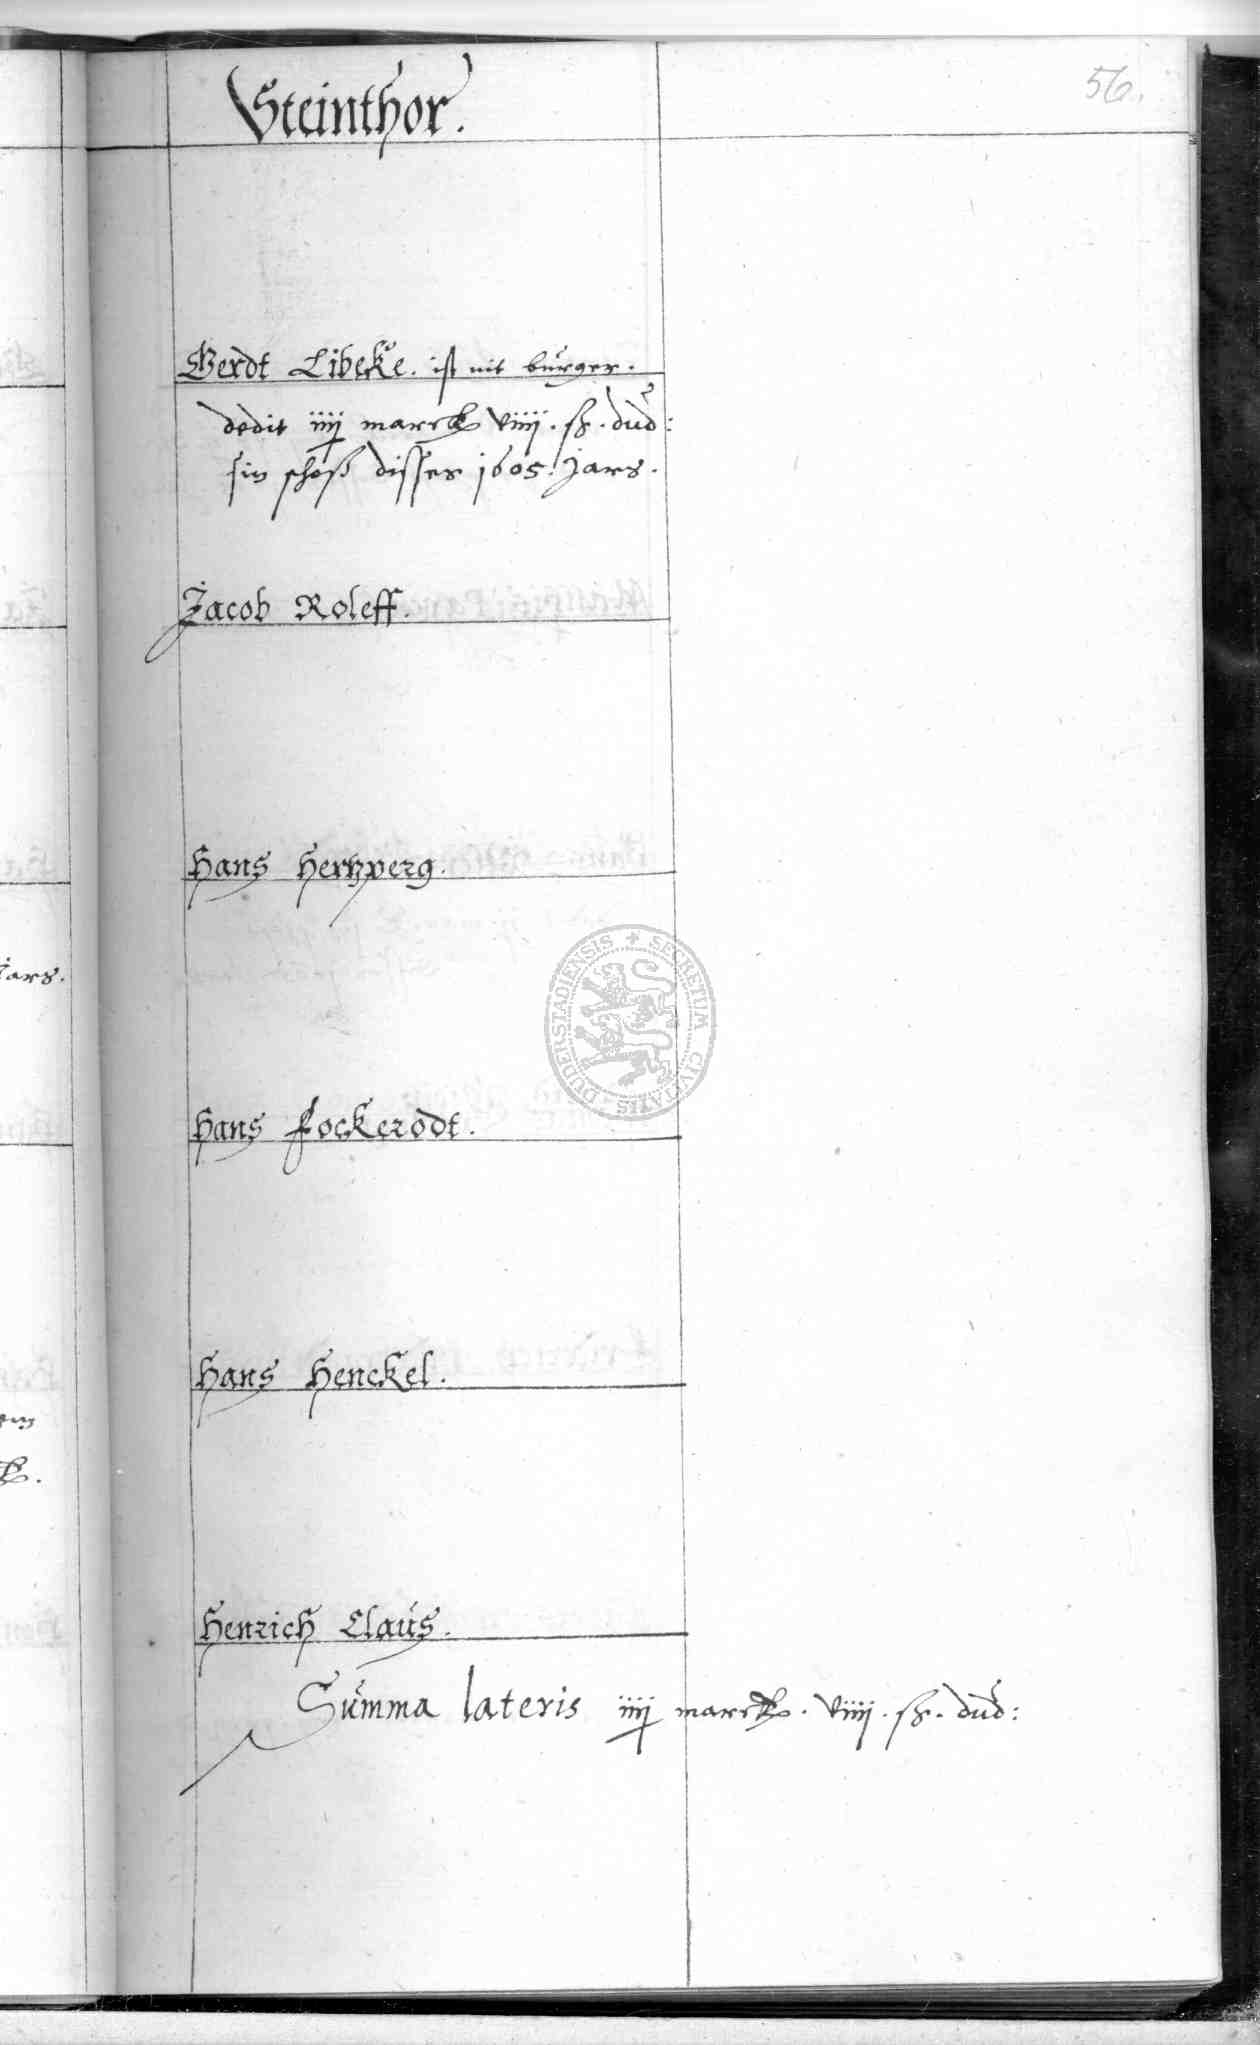 Steinthor.
56.
Gerdt Libeke. ist nit bürger.
dedit iiij marck viiij. ß. dud:
sin schoß disses 1605. Jars.
Jacob Roleff.
Hans Hertzberg.
Jars.
DUDERSTADIENSIS + SECRETUM CIVITATIS
Hans Fockerodt.
Hans Henckel.
Henrich Claus.
Summa lateris iiij marck. viiij. ß. dud: